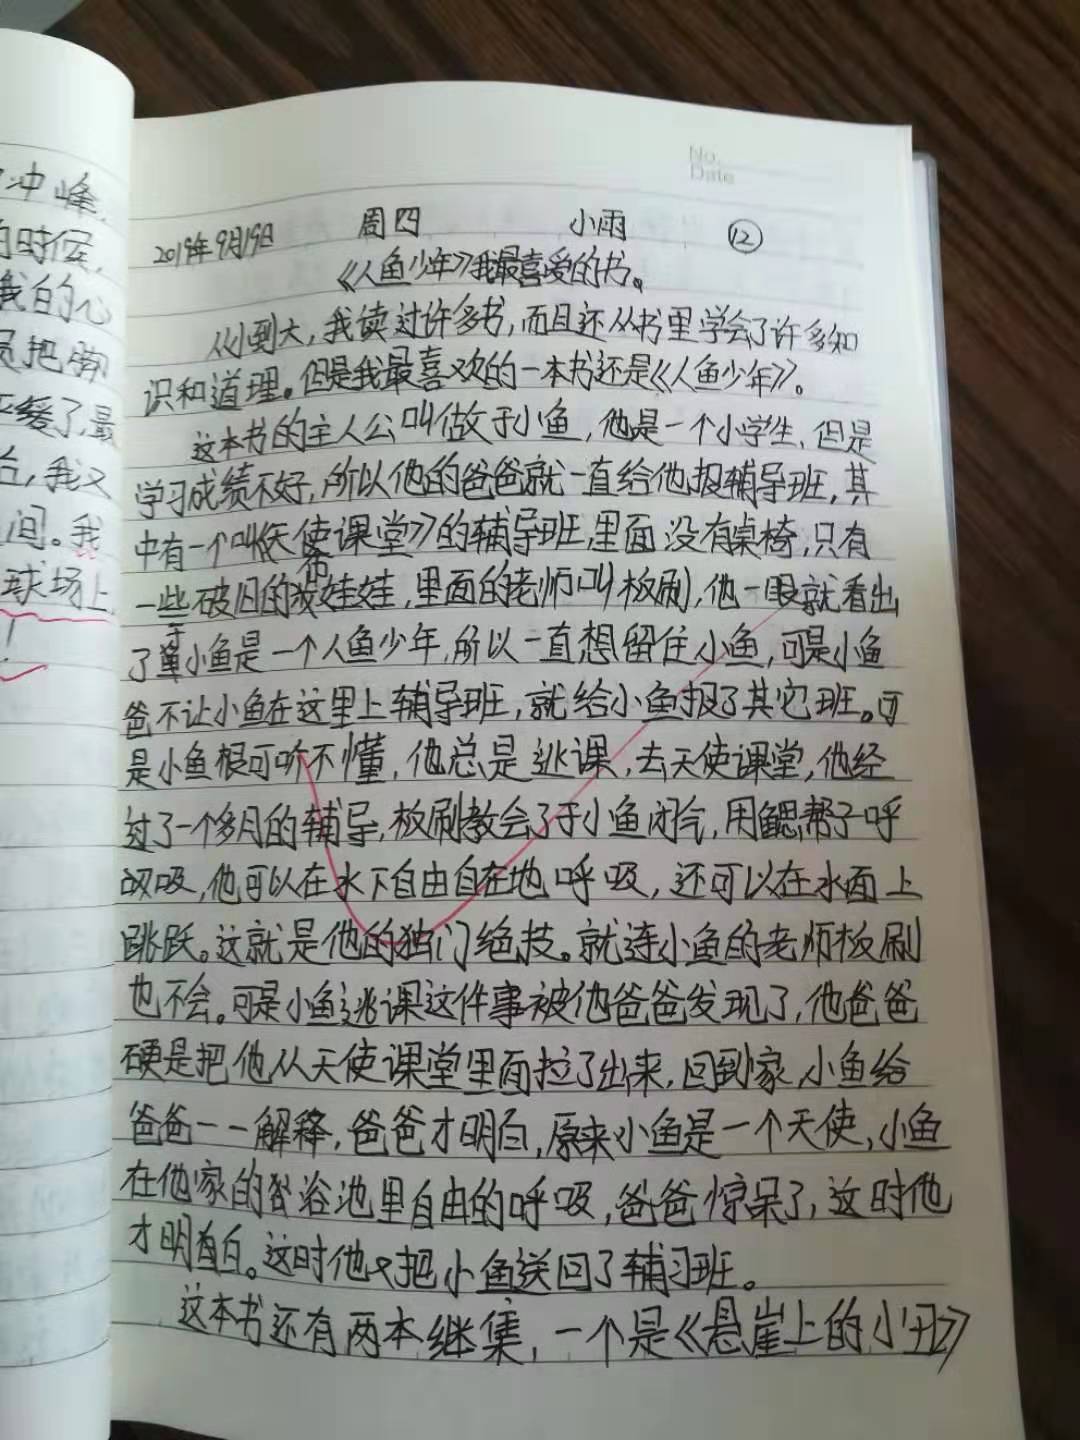 冲峰,
的时候,
我的心
员把脚
缓了,最
台,我又
间。我
球场上
No.
Date
2019年9月19日 周四 小雨 12
《人鱼少年》我最喜爱的书。
从小到大,我读过许多书,而且还从书里学会了许多知
识和道理。但是我最喜欢的一本书还是《人鱼少年》。
这本书的主人公叫做于小鱼,他是一个小学生,但是
学习成绩不好,所以他的爸爸就一直给他报辅导班,其
中有一个叫《天使课堂》的辅导班,里面没有桌椅,只有
一些破旧的布娃娃,里面的老师叫板刷,他一眼就看出
了于小鱼是一个人鱼少年,所以一直想留住小鱼,可是小鱼
爸不让小鱼在这里上辅导班,就给小鱼报了其它班。可
是小鱼根可听不懂,他总是逃课,去天使课堂,他经
过了一个多月的辅导,板刷教会了于小鱼闭气,用鳃帮子呼
吸,他可以在水下自由自在地呼吸,还可以在水面上
跳跃。这就是他的独门绝技。就连小鱼的老师板刷
也不会。可是小鱼逃课这件事被他爸爸发现了,他爸爸
硬是把他从天使课堂里面拉了出来,回到家,小鱼给
爸爸一一解释,爸爸才明白,原来小鱼是一个天使,小鱼
在他家的浴池里自由的呼吸,爸爸惊呆了,这时他
才明白。这时他又把小鱼送回了辅习班。
这本书还有两本继集,一个是《悬崖上的小丑》